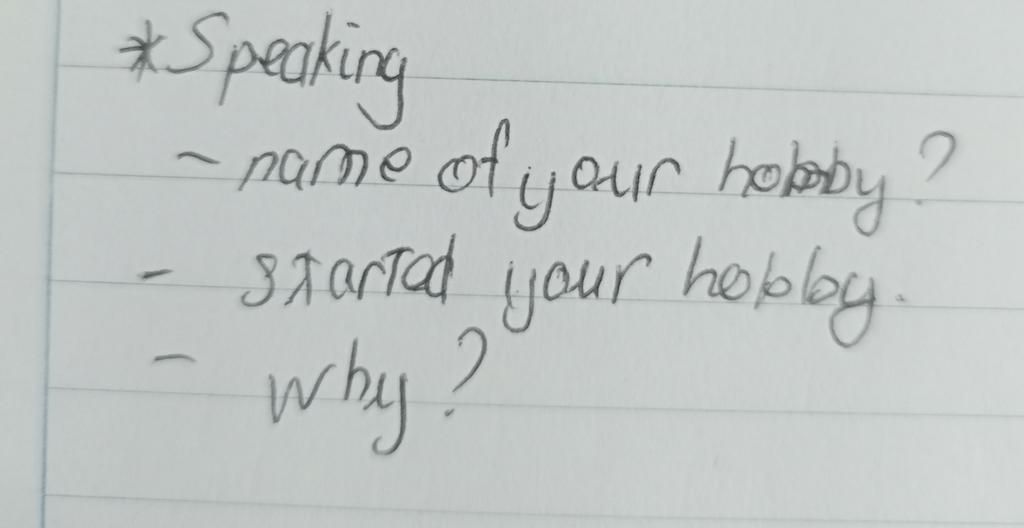 *Speaking
- name of your hobby?
- started your hobby.
- why?